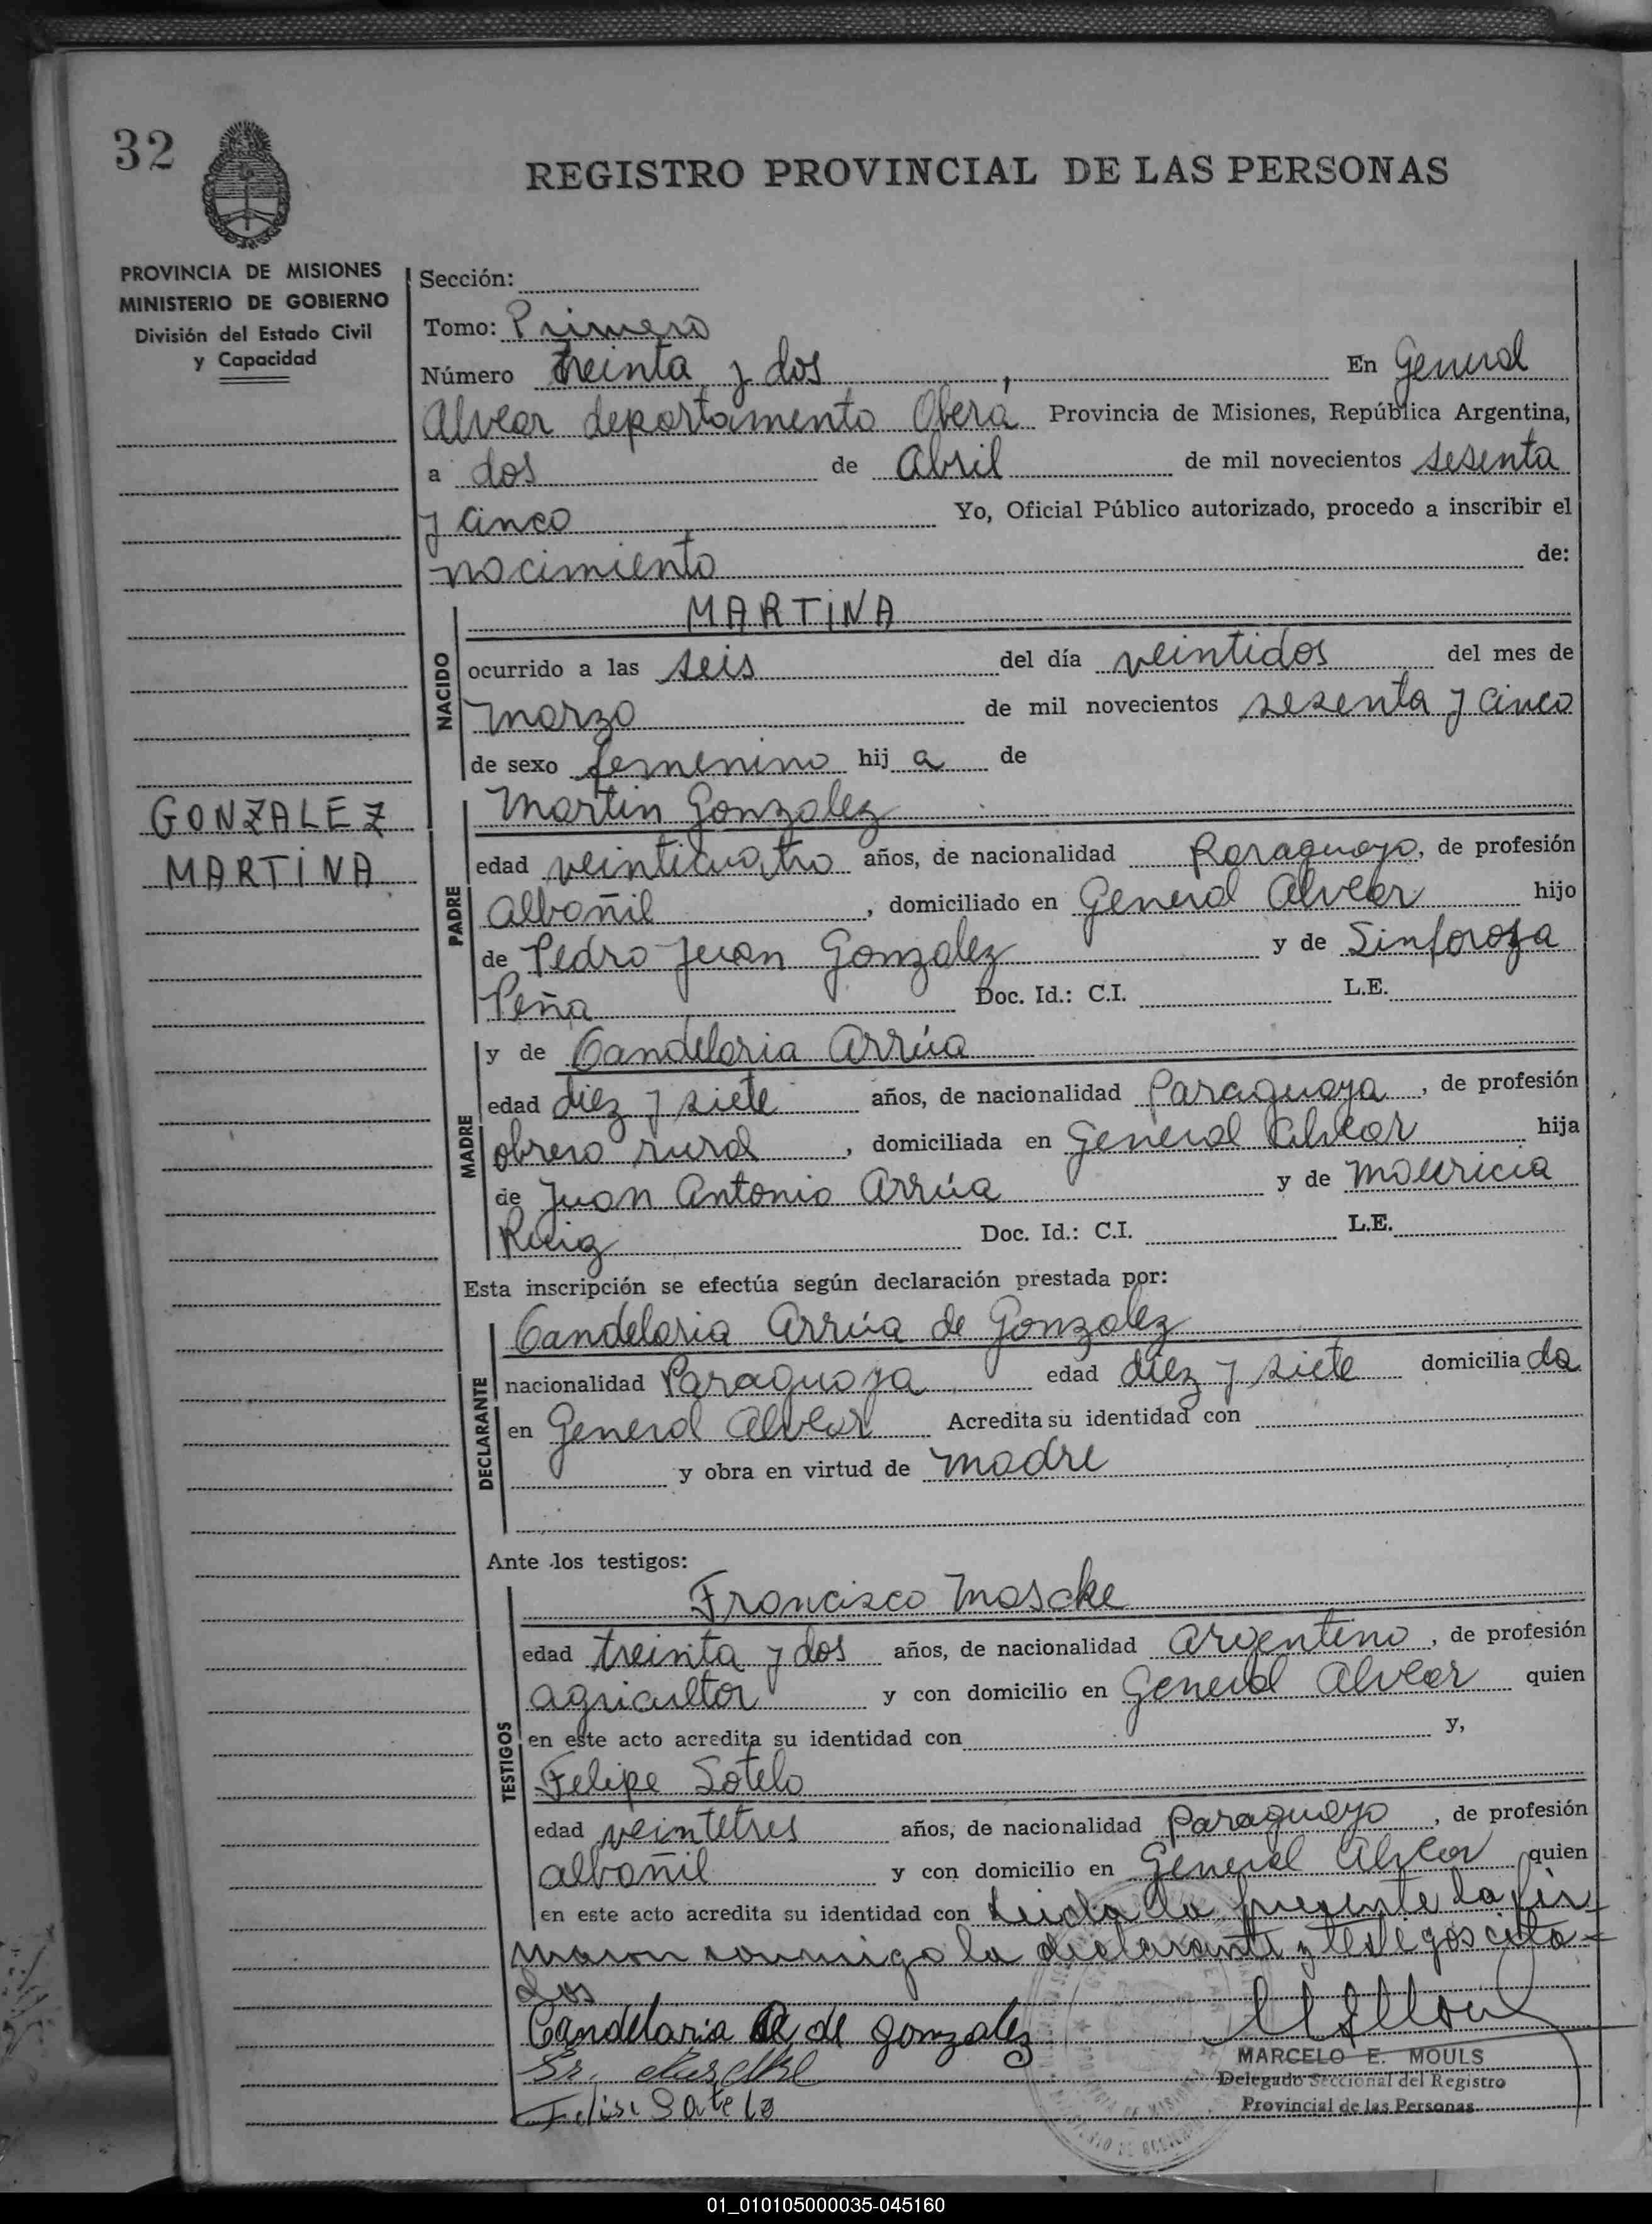 32
REGISTRO PROVINCIAL DE LAS PERSONAS
PROVINCIA DE MISIONES
MINISTERIO DE GOBIERNO
División del Estado Civil
y Capacidad
Sección:
Tomo: Primero
Número treinta y dos, En General
Alvear departamento Oberá Provincia de Misiones, República Argentina,
a dos de Abril de mil novecientos sesenta
y cinco Yo, Oficial Público autorizado, procedo a inscribir el
nacimiento de:
NACIDO
MARTINA
ocurrido a las seis del día veintidos del mes de
Marzo de mil novecientos sesenta y cinco
de sexo femenino hij a de
GONZALEZ
MARTINA
PADRE
Martin Gonzalez
edad veinticuatro años, de nacionalidad Paraguayo, de profesión
albañil, domiciliado en General Alvear hijo
de Pedro Juan Gonzalez y de Sinforosa
Peña Doc. Id.: C.I. L.E.
MADRE
y de Candelaria Arrúa
edad diez y siete años, de nacionalidad Paraguaya, de profesión
obrera rural, domiciliada en General Alvear hija
de Juan Antonio Arrúa y de Mauricia
Ruiz Doc. Id.: C.I. L.E.
Esta inscripción se efectúa según declaración prestada por:
DECLARANTE
Candelaria Arrúa de Gonzalez
nacionalidad Paraguaya edad diez y siete domicilia da
en General Alvear Acredita su identidad con
y obra en virtud de madre
Ante los testigos:
TESTIGOS
Francisco Maschke
edad treinta y dos años, de nacionalidad argentino, de profesión
agricultor y con domicilio en General Alvear quien
en este acto acredita su identidad con y,
Felipe Sotelo
edad veintetres años, de nacionalidad Paraguayo, de profesión
albañil y con domicilio en General Alvear quien
en este acto acredita su identidad con Leida la presente la fir
maron conmigo la declarante y testigos cita=
dos
Candelaria de gonzalez
MARCELO E. MOULS
Delegado Seccional del Registro
Provincial de las Personas
01_010105000035-045160